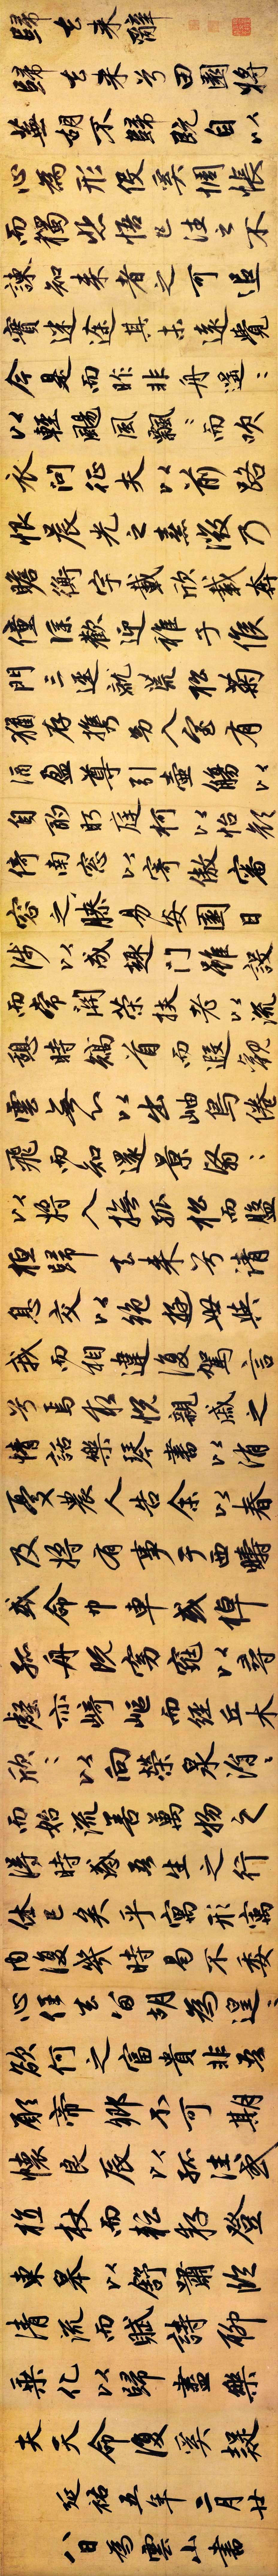 歸去来辭
歸去来兮田園将
蕪胡不歸既自以
心為形役奚惆悵
而獨悲悟已往之不
諫知来者之可追
實迷途其未遠覺
今是而昨非舟遥〻
以輕颺風飄〻而吹
衣問征夫以前路
恨晨光之熹微乃
瞻衡宇載欣載奔
僮僕歡迎稚子候
門三逕就荒松菊
猶存攜幼入室有
酒盈尊引壺觴以
自酌眄庭柯以怡顔
倚南窓以寄傲審
容之膝易安園日
涉以成趣門雖設
而常關策扶老以流
憩時矯首而遐觀
雲無心以出岫鳥倦
飛而知還景翳〻
以将入撫孤松而盤
桓歸去来兮請
息交以絶遊世與
我而相違復駕言
兮焉求悦親戚之
情話樂琴書以消
憂農人告余以春
及将有事于西疇
或命巾車或棹
孤舟既窈窕以尋
壑亦崎嶇而經丘木
欣〻以向榮泉涓〻
而始流善萬物之
得時感吾生之行
休已矣乎寓形寓
内復幾時曷不委
心任去留胡為遑〻
欲何之富貴非吾
願帝鄉不可期
懷良辰以孤往或
植杖而耘耔登
東皋以舒嘯臨
清流而賦詩聊
乘化以歸盡樂
夫天命復奚疑
延祐五年二月廿
八日為雲山書